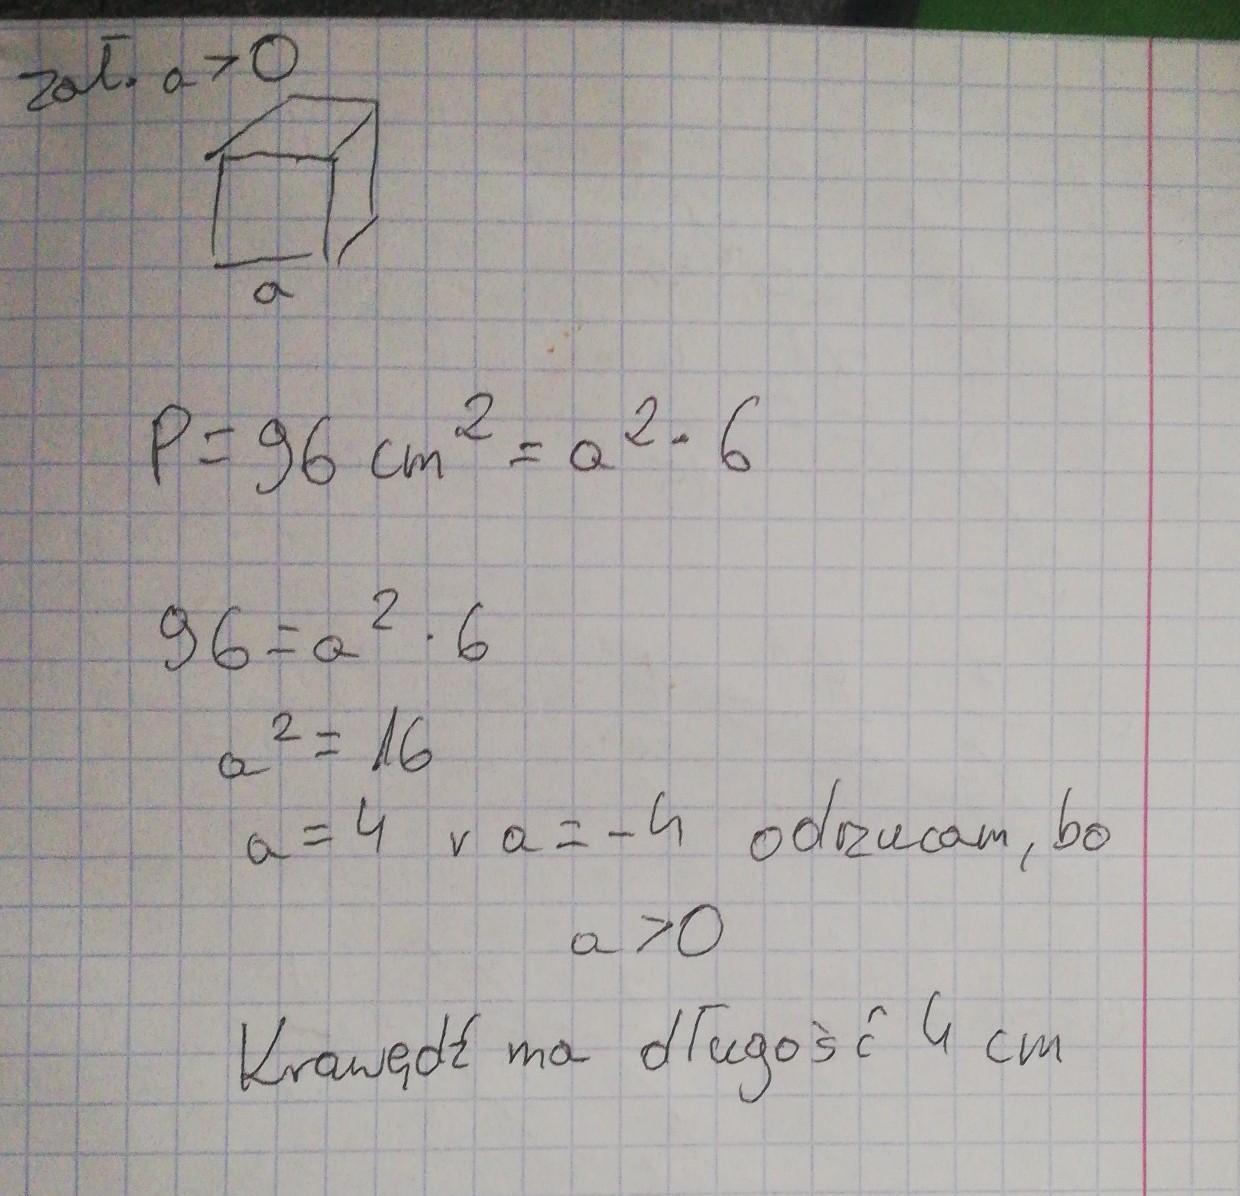 zał. a > 0
a
P = 96 cm² = a² · 6
96 = a² · 6
a² = 16
a = 4 v a = -4 odrzucam, bo
a > 0
Krawędź ma długość 4 cm